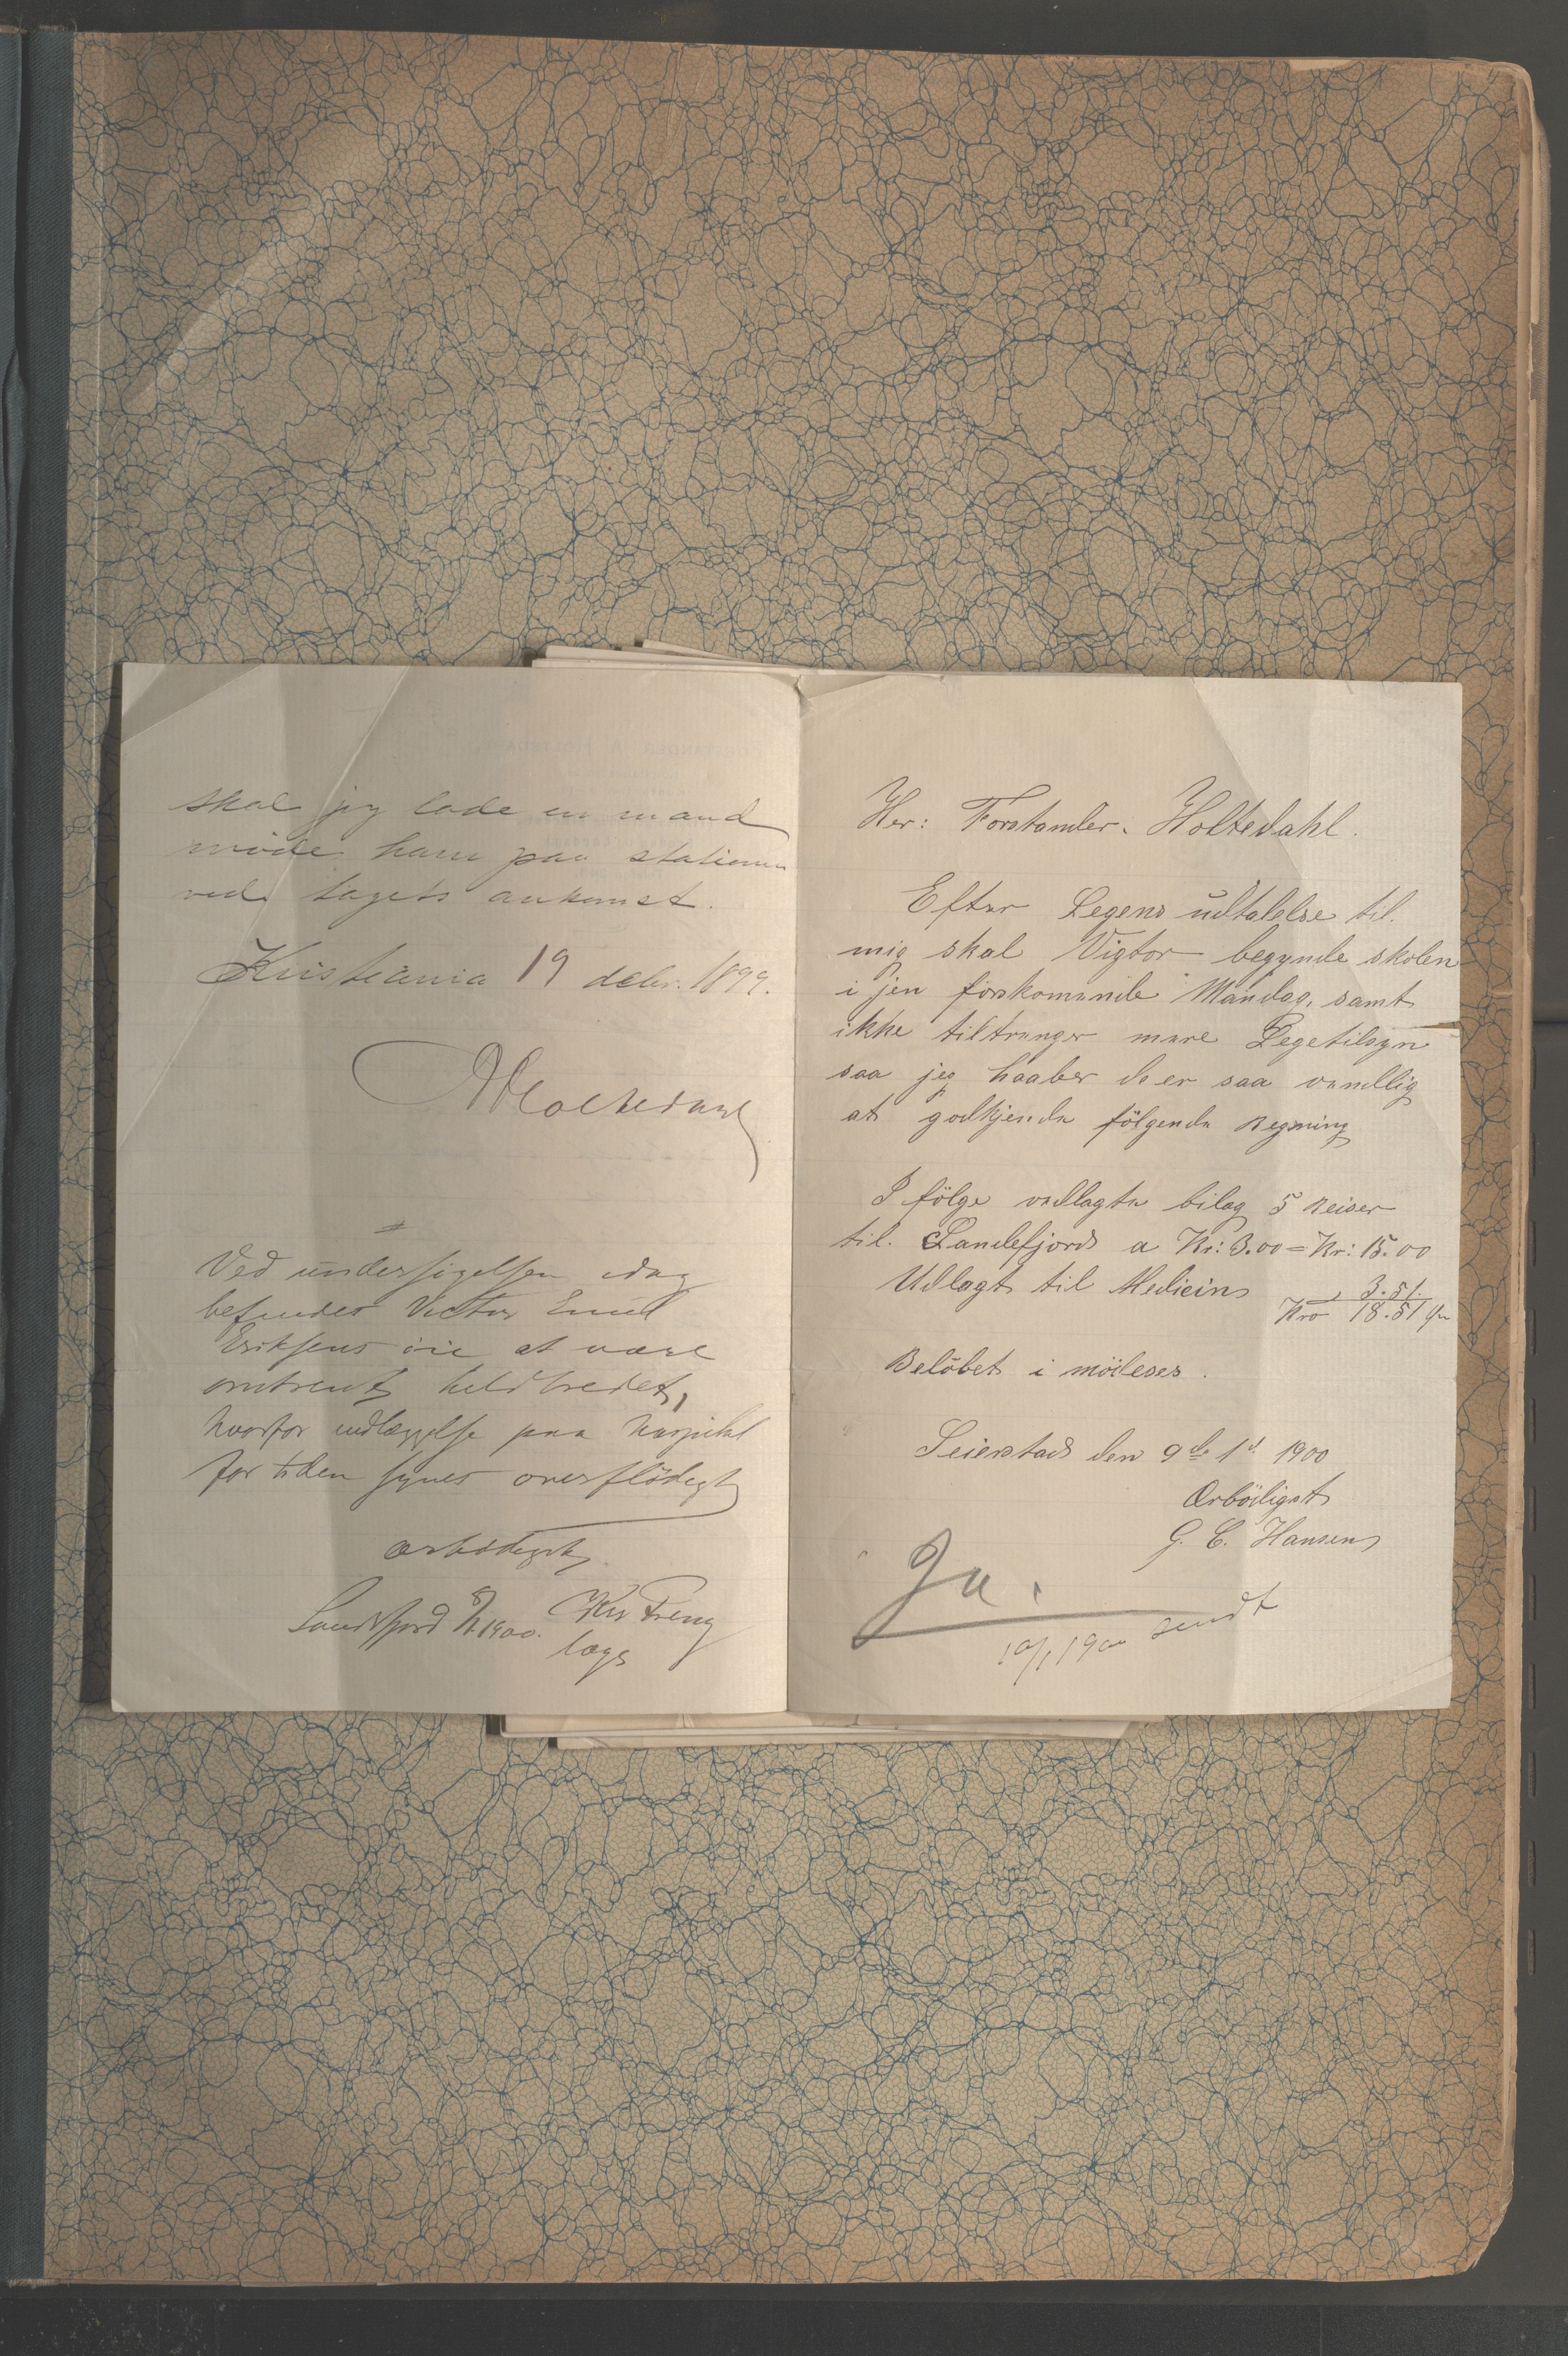 skal jeg lade en mand
møde ham paa stationen
ved togets ankomst.
Kristiania 19 debr. 1899.
A Holtedahl
Ved undersøgelsen idag
befandtes Victor Emil
Eriksens øie at være
omtrent helbredet,
hvorfor indlæggelse paa hospital
for tiden synes overflødigt
ærbødigst
Sandefjord 8/1 1900. Chr Freng
læge
Her: Forstander. Holtedahl.
Efter Legens udtalelse til.
mig skal Vigtor begynde skolen
i jen førskomende Mandag, samt
ikke tiltrenger mere Legetilsyn
saa jeg haaber de er saa venllig
at godkjende følgende Regning
I følge vedlagte bilag 5 Reiser
til. Sandefjord a Kr: 3.00 = Kr: 15.00
Udlagt til Medicin " 3.51.
Kro 18.51
Beløbet i møileses.
Seierstad den 9de 1d. 1900
Ærbødigst
G. C. Hansen
Ja.
10/1 1900 sendt